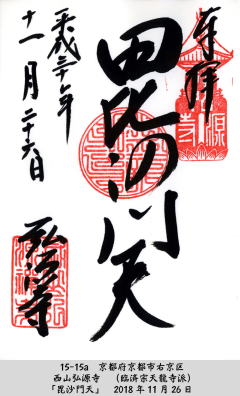 奉拝
毘沙門天
平成三十年
十一月二十六日
弘源寺
15-15a 京都府京都市右京区
西山弘源寺 (臨済宗天龍寺派)
「毘沙門天」 2018年11月26日